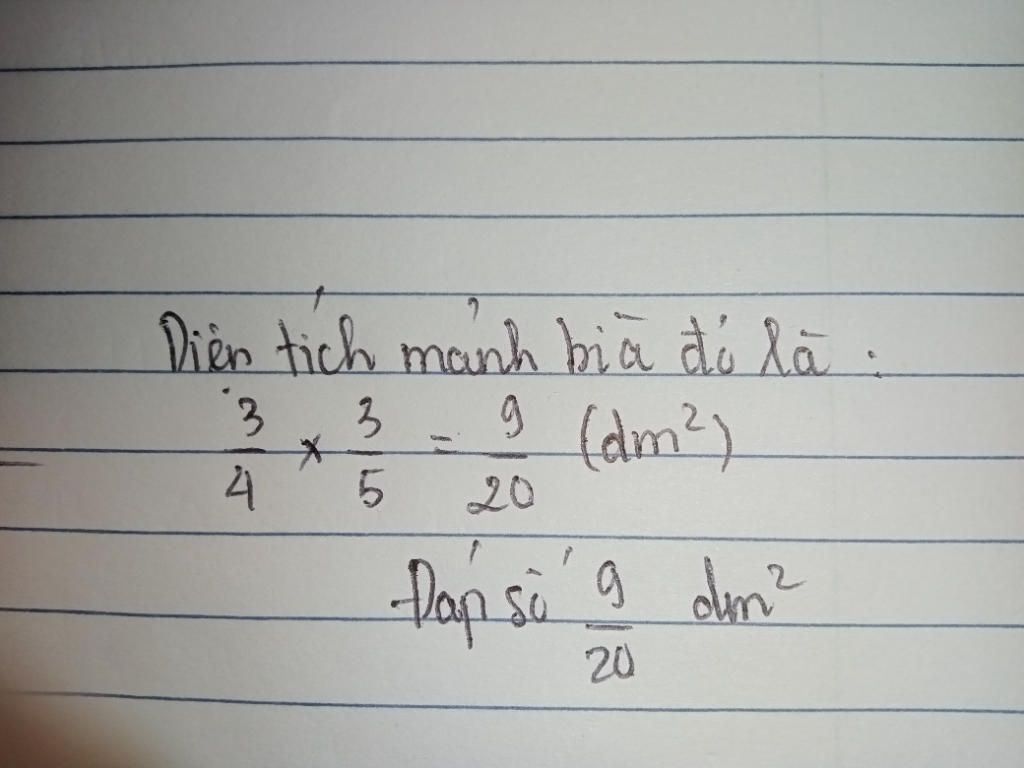 Diện tích mảnh bìa đó là :
3/4 × 3/5 = 9/20 (dm²)
Đáp số 9/20 dm²